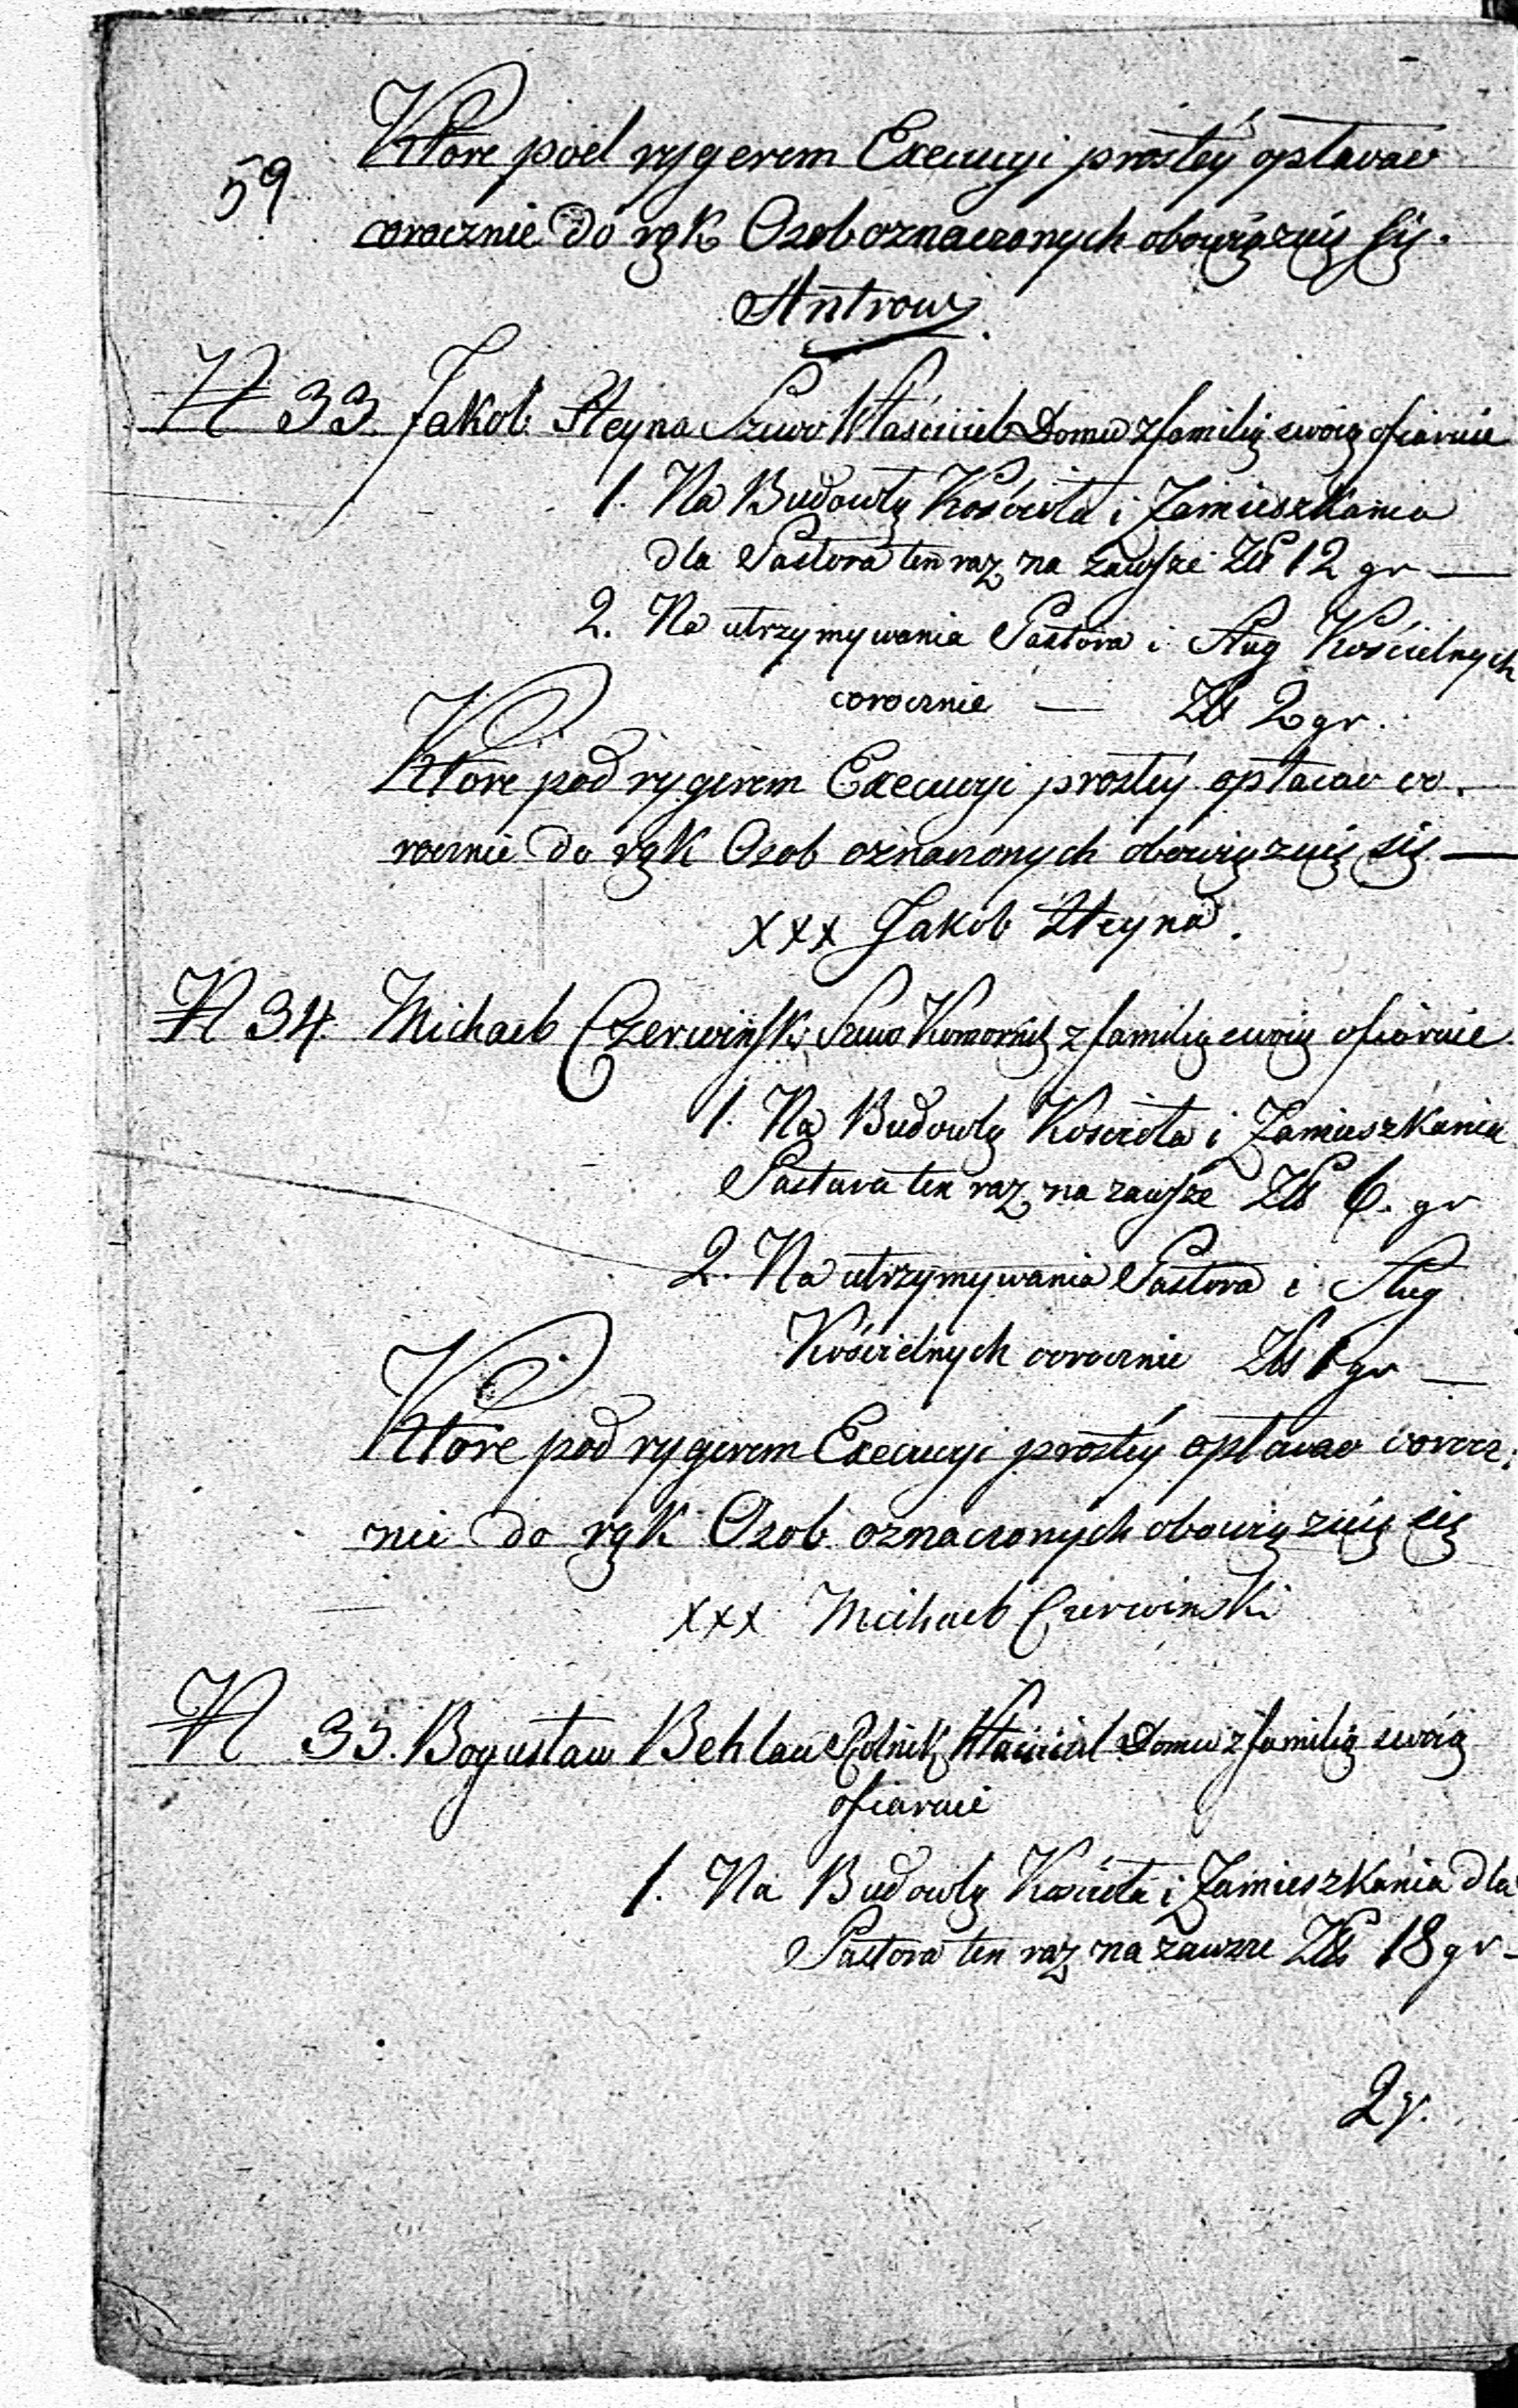 Ktore pod rygerem Execucyi prostéy opłacać
59
corocznie do rąk Osob oznaczonych obowiązuię się.
Antrow
N 33. Jakob Steyna Szewc Właściciel Domu z familią swoią ofiaruie
1. Na Budowlę Kościoła i Zamieszkania
dla Pastora ten raz na zawsze Złł 12 gr —
2. Na utrzymywania Pastora i Sług Kościelnych
corocznie — Złł 2 gr.
Ktore pod rygerem Execucyi prostéy opłacać co-
rocznie do rąk Osob oznaczonych obowiązuię się —
xxx Jakob Steyna.
N 34. Michael Czerwinski Szewc Komornik z familią swoią ofiaruie
1. Na Budowlę Kościoła i Zamieszkania
Pastora ten raz na zawsze Złł 6. gr
2. Na utrzymywania Pastora i Sług
Kościelnych corocznie Złł 1 gr —
Ktore pod rygerem Execucyi prostéy opłacać corocz-
nie do rąk Osob oznaczonych obowiązuię się
xxx Michael Czerwinski
N 35. Bogusław Behlau Rolnik Właściciel Domu z familią swoią
ofiaruie
1. Na Budowlę Kościoła i Zamieszkania dla
Pastora ten raz na zawsze Złł 18 gr -